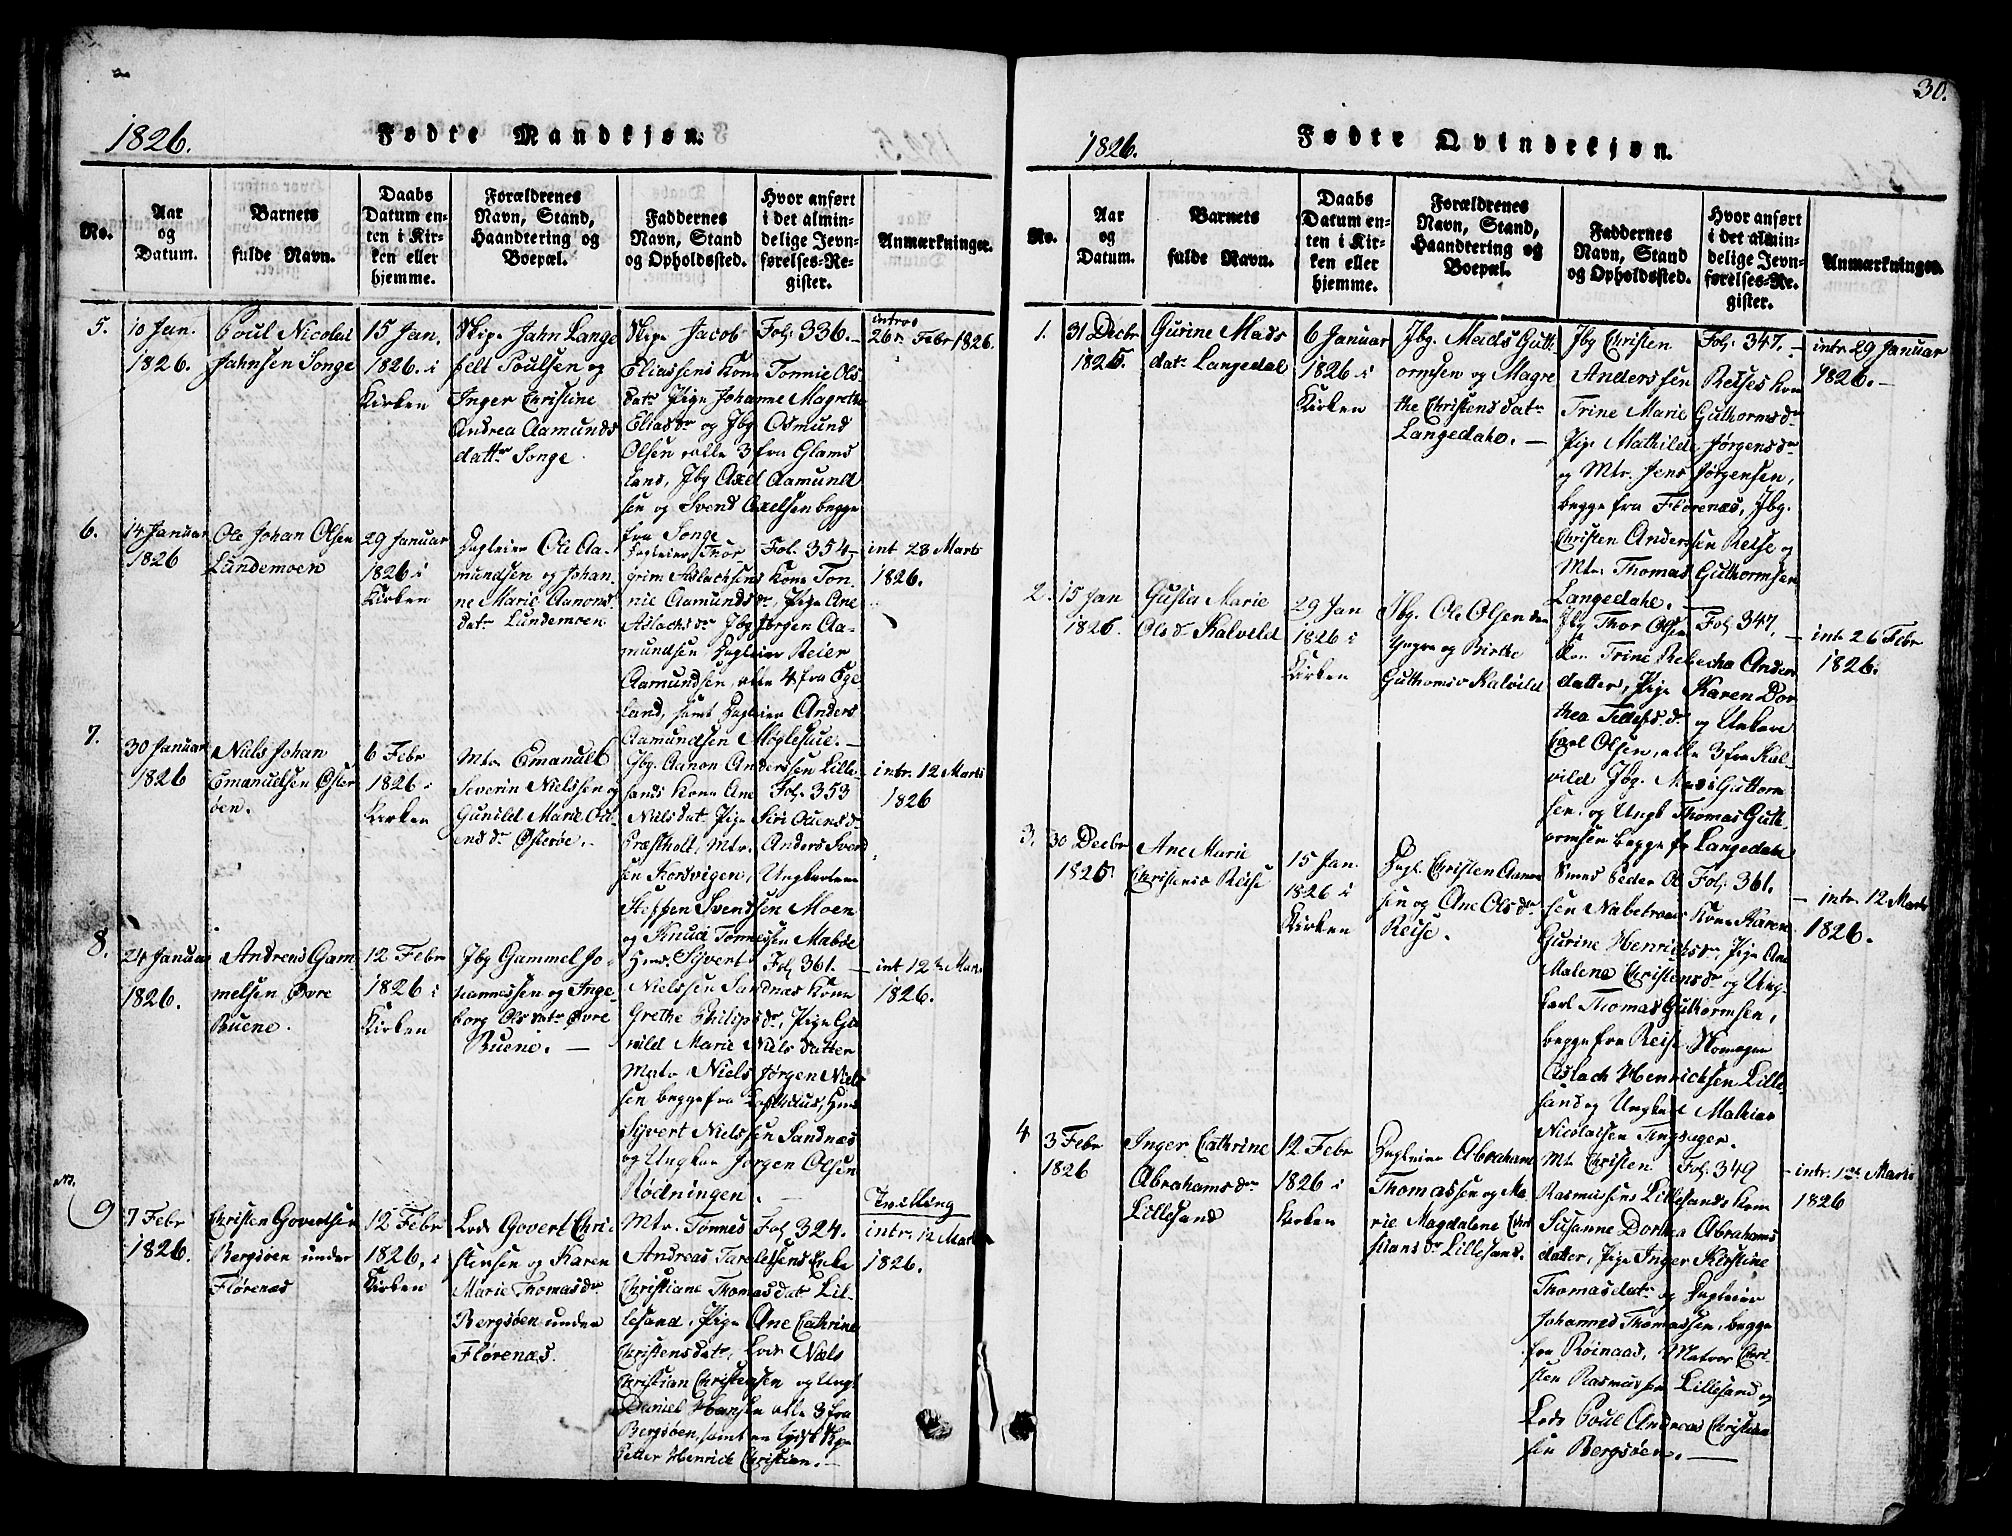 30.
1826.
Fødte Mandkjøn.
No.
Aar
og
Datum.
Barnets
fulde Navn.
Daabs
Datum en-
ten i Kir-
ken eller
hjemme.
Forældrenes
Navn, Stand,
Haandtering og
Boepæl.
Faddernes
Navn, Stand
og Opholdssted.
Hvor anført
i det almin-
delige Jevn-
førelses-Re-
gister.
Anmærkninger.
5.
10 Jan.
1826.
Poul Nicolai
Jahnsen Songe
15 Jan.
1826. i
Kirken
Skip. Jahn Lange
felt Poulsen og
Inger Christine
Andrea Aamunds
dattr Songe.
Skip. Jacob
Eliassens Kone Tonnie Ols-
datr Pige Johanne Magrethe
Eliasdr og Jbg Osmund
Olsen alle 3 fra Glams
land, Jbg Axel Aamund
sen og Svend Axelsen begge
fra Songe
Fol. 336.
intro
26. Febr 1826.
6.
14 Januar
1826
Ole Johan Olsen
Lundemoen
29 Januar
1826 i
Kirken
Dagleier Ole Aa-
mundsen og Johan-
ne Marie Aanons
datr Lundemoen
Dagleier Thor
grim Aslachsens Kone Ton-
nie Aamundsdr, Pige Ane
Aslachsdr Jbg Jørgen Aa-
mundsen Dagleier Reier
Aamundsen, alle 4 fra Øge
land, samt Dagleier Anders
Aamundsen Møglesue.
Fol. 354
int 28 Marts
1826.
7.
30 Januar
1826
Niels Johan
Emanuelsen Øster
øen.
6 Febr
1826 i
Kirken
Mtr. Emanuel
Severin Nielssen og
Gunild Marie Ou-
ensdr Østerøe.
Jbg. Aanon Anderssen Lille-
sands Kone Ane
Nielsdatr. Pige Siri Ouensdr
Præstholt, Mtr. Anders Svend
sen Korsvigen, Ungkarlene
Steffen Svendssen Moen
og Knud Tønnessen Mabøe
Fol. 353
intr. 12 Marts
1826
8.
24 Januar
1826.
Andreas Gam
melsen Øvre
Buene.
12 Febr
1826 i
Kirken
Jbg Gammel Jo-
hannessen og Inge-
borg Olsdatr Øvre
Buene.
Hmd. Sivert
Nielssen Sandnæs Kone
Grethe Philipsdr, Pige Gu
nild Marie Nielsdatter
Matr Niels Jørgen Niels
sen begge fra
Sivert Nielssen Sandnæs
og Ungkar Jørgen Olsen
Rødningen.
Fol. 361.
int. 12 Mar
1826.
9
7 Febr
1826.
Christen Govertsen
Bergsøen under
Flørenæs
12 Febr
1826, i
Kirken
Lods Govert Chri
stensen og Karen
Marie Thomasdr
Bergsøen under
Flørenæs.
Mtr. Tønnes
Andreas Tarelelsens Enke
Christiane Thomasdatr Lil-
lesand, Pige Ane Cathrine
Christensdatr, Lods Niels
Christian Christensen og Ungk
Daniel Hansen alle 3 fra
Bergsøen, samt en tydsk Skpr
Petter Henrick Christian.
Fol. 324.
Tvilling
intr. 12 Marts
1826.
1826.
Fødte Qvindekjøn.
No.
Aar
og
Datum.
Barnets
fulde Navn.
Daabs
Datum en-
ten i Kir-
ken eller
hjemme.
Forældrenes
Navn, Stand,
Haandtering og
Boepæl.
Faddernes
Navn, Stand
og Opholdssted.
Hvor anført
i det almin-
delige Jevn-
førelses-Re-
gister.
Anmærkninger.
1.
31 Decbr
1825.
Gurine Mads
datr Langedal
6 Januar
1826 i
Kirken
Jbg. Mads Gutt-
ormsen og Magre
the Christensdatr
Langedahe.
Jbg Christen
Anderssen Reises Kone
Trine Marie Guthormsdr
Pige Mathilde Jørgensdr
og Mtr. Jens Jørgensen,
begge fra Flørenæs, Jbg.
Christen Anderssen Reise og
Mtr. Thomas Guthormsen
Langedahe.
Fol. 347.
intr 29 Januar
1826.
2.
15 Jan
1826.
Gusta Marie
Olsdr Kalvild
29 Jan
1826 i
Kirken
Jbg. Ole Olsen den
Yngre og Birthe
Guthomsdr Kalvild
Jbg Thor Olsens
Kone Trine Rebecha Anders
datter, Pige Karen Dor
thea Tellefsdr og Unkarl
Carl Olsen, alle 3 fra Kal-
vild Jbg. Mads Guttorm
sen og Ungk Thomas Gutt-
ormsen begge fr Langedahl
Fol. 347.
intr 26 Febr
1826.
3.
30 Decbr
1825
Ane Marie
Christensdr Reise
15 Jan.
1826 i
Kirken
Dagl. Christen Aanon
sen og Ane Olsdr
Reise.
Smed Peder Ol
sen Nabetroens Kone Karen
Gurine Henrichsdr, Pige Ane
Malene Christensdr og Ung-
karl Thomas Guthormsen,
begge fra Reise Skomager
Aslach Henrichsen Lille
sand og Ungkarl Mathias
Nicolaisen Tingsager.
Fol. 361.
intr. 12 Marts
1826.
4
3 Febr
1826
Inger Cathrine
Abrahamsdr
Lillesand
12 Febr
1826 i
Kirken
Dagleier Abraham
Thomassen og Ma
rie Magdalene Chri
stiansdr Lillesand.
Mt Christen
Rasmussens Lillesands Kone
Susanne Dorthea Abrahams
datter, Pige Inger Kirstine
Thomasdatr og Dagleier
Johannes Thomassen, begge
fra Røinaas, Matros Chri-
sten Rasmussen Lillesand og
Lods Poul Andreas Christian
sen Bergsøen.
Fol. 349
intr. 1st Marts
1826